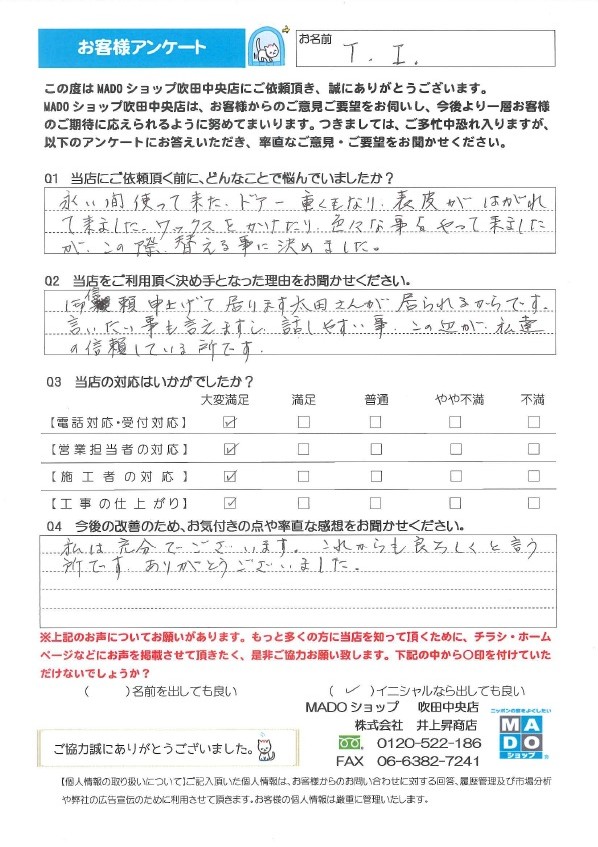 お客様アンケート
お名前
T. I.
この度は MADO ショップ吹田中央店にご依頼頂き、誠にありがとうございます。
MADO ショップ吹田中央店は、お客様からのご意見ご要望をお伺いし、今後より一層お客様
のご期待に応えられるように努めてまいります。つきましては、ご多忙中恐れ入りますが、
以下のアンケートにお答えいただき、率直なご意見・ご要望をお聞かせください。
Q1 当店にご依頼頂く前に、どんなことで悩んでいましたか？
永い間使って来た、ドアー重くもなり、表皮がはがれ
て来ました。ワックスをかけたり、色々な事をやって来ました
が、この際、替える事に決めました。
Q2 当店をご利用頂く決め手となった理由をお聞かせください。
信頼申上げて居ります太田さんが居られるからです。
言いたい事も言えますし、話しやすい事、この辺が、私達
の信頼している所です。
Q3 当店の対応はいかがでしたか？
大変満足 満足 普通 やや不満 不満
【電話対応・受付対応】
【営業担当者の対応】
【施工者の対応】
【工事の仕上がり】
Q4 今後の改善のため、お気付きの点や率直な感想をお聞かせください。
私は充分でございます。これからも良ろしくと言う
所です。ありがとうございました。
※上記のお声についてお願いがあります。もっと多くの方に当店を知って頂くために、チラシ・ホーム
ページなどにお声を掲載させて頂きたく、是非ご協力お願い致します。下記の中から〇印を付けていた
だけないでしょうか？
（　　）名前を出しても良い　（ ✓ ）イニシャルなら出しても良い
MADO ショップ　吹田中央店
株式会社　井上昇商店
0120-522-186
FAX 06-6382-7241
ニッポンの窓をよくしたい
MADO
ショップ
ご協力誠にありがとうございました。
【個人情報の取り扱いについて】ご記入頂いた個人情報は、お客様からのお問い合わせに対する回答、履歴管理及び市場分析
や弊社の広告宣伝のために利用させて頂きます。お客様の個人情報は厳重に管理いたします。